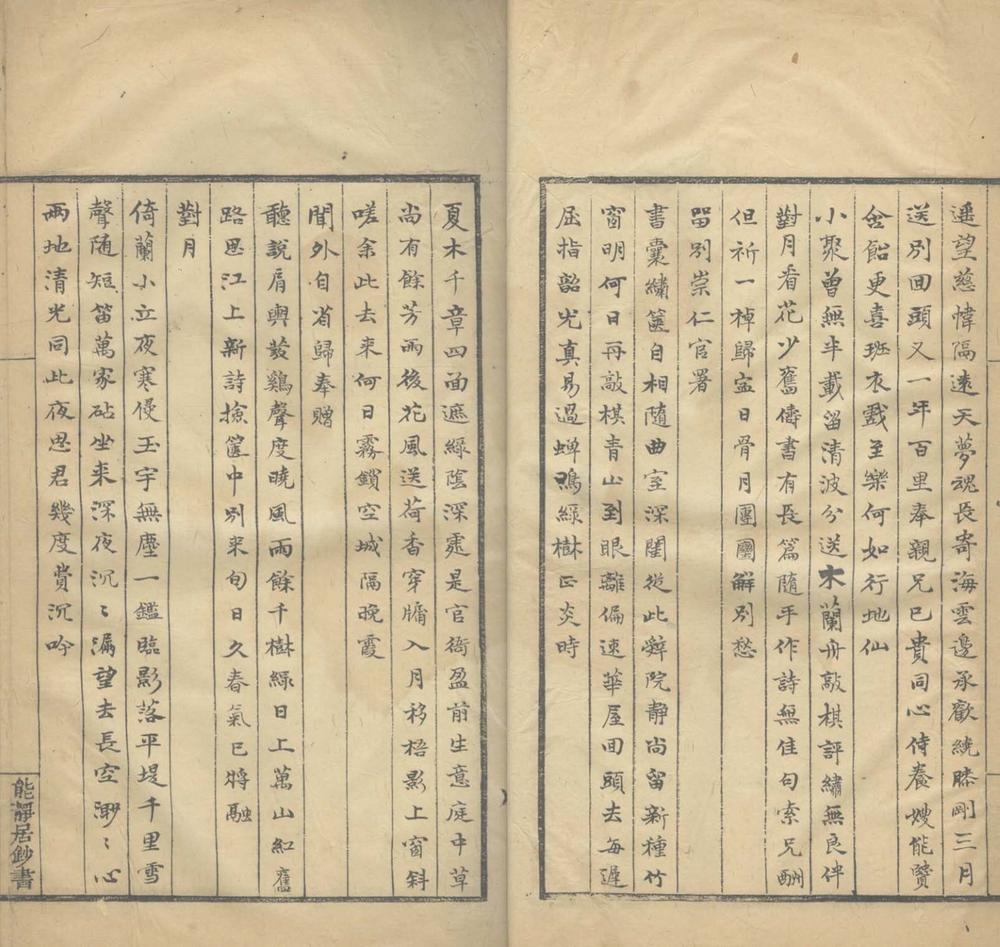 遥望慈幃隔遠天夢魂長寄海雲邊承歡繞膝剛三月
送別回頭又一年百里奉親兄已貴同心侍養嫂能賢
含飴更喜班衣戲至樂何如行地仙
小聚曾無半載留清波分送木蘭舟敲棋評繡無良伴
對月看花少舊儔書有長篇隨手作詩無佳句索兄酬
但祈一棹歸寧日骨月團圞解別愁
留別崇仁官署
書囊繡篋自相隨曲室深閨從此辭院靜尚留新種竹
窗明何日再敲棋青山到眼離偏速華屋回頭去每遲
屈指韶光真易過蟬鳴綠樹正炎時
夏木千章四面遮綠陰深處是官衙盈前生意庭中草
尚有餘芳雨後花風送荷香穿牖入月移梧影上窗斜
嗟余此去來何日霧鎖空城隔晚霞
聞外自省歸奉贈
聽說肩輿發鷄聲度曉風雨餘千樹綠日上萬山紅舊
路思江上新詩撿篋中別來旬日久春氣已將融
對月
倚蘭小立夜寒侵玉宇無塵一鑑臨影落平堤千里雪
聲隨短笛萬家砧坐來深夜沉〻漏望去長空渺〻心
兩地清光同此夜思君幾度賞沉吟
能靜居鈔書